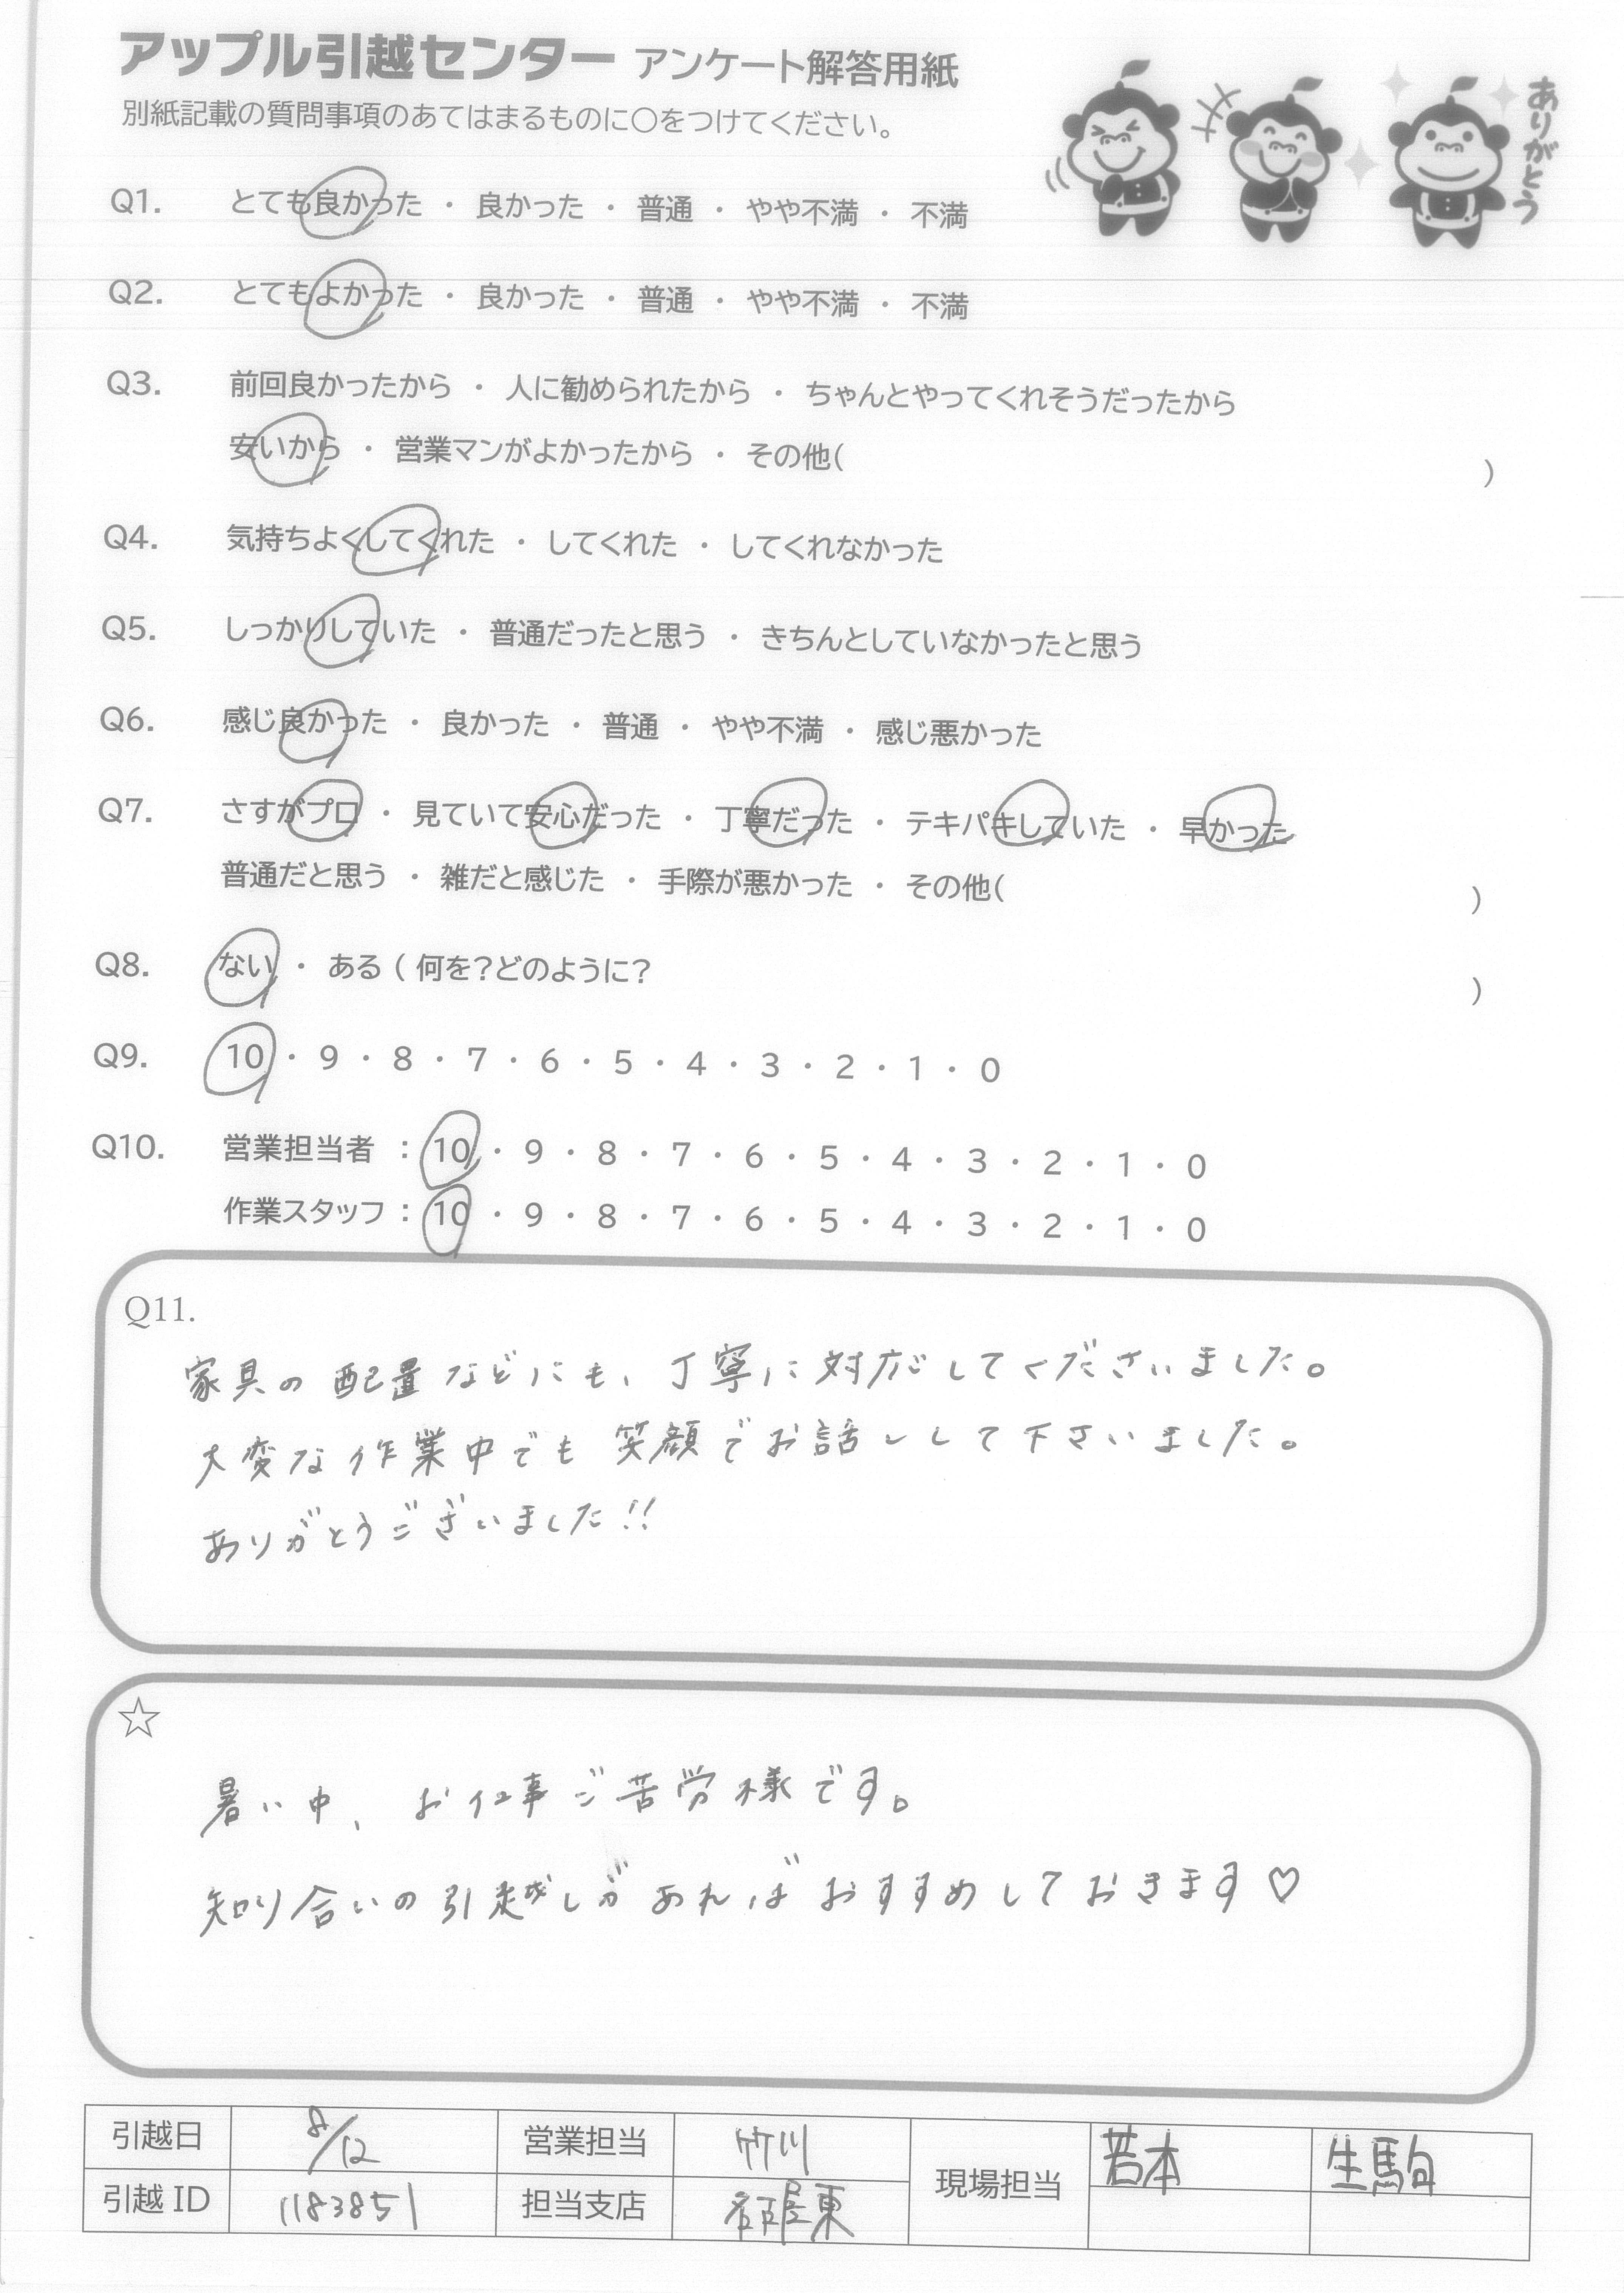 アップル引越センター アンケート解答用紙
別紙記載の質問事項のあてはまるものに○をつけてください。
ありがとう
Q1. とても良かった ・ 良かった ・ 普通 ・ やや不満 ・ 不満
Q2. とてもよかった ・ 良かった ・ 普通 ・ やや不満 ・ 不満
Q3. 前回良かったから ・ 人に勧められたから ・ ちゃんとやってくれそうだったから
安いから ・ 営業マンがよかったから ・ その他( )
Q4. 気持ちよくしてくれた ・ してくれた ・ してくれなかった
Q5. しっかりしていた ・ 普通だったと思う ・ きちんとしていなかったと思う
Q6. 感じ良かった ・ 良かった ・ 普通 ・ やや不満 ・ 感じ悪かった
Q7. さすがプロ ・ 見ていて安心だった ・ 丁寧だった ・ テキパキしていた ・ 早かった
普通だと思う ・ 雑だと感じた ・ 手際が悪かった ・ その他( )
Q8. ない ・ ある ( 何を?どのように? )
Q9. 10 ・ 9 ・ 8 ・ 7 ・ 6 ・ 5 ・ 4 ・ 3 ・ 2 ・ 1 ・ 0
Q10. 営業担当者 : 10 ・ 9 ・ 8 ・ 7 ・ 6 ・ 5 ・ 4 ・ 3 ・ 2 ・ 1 ・ 0
作業スタッフ : 10 ・ 9 ・ 8 ・ 7 ・ 6 ・ 5 ・ 4 ・ 3 ・ 2 ・ 1 ・ 0
Q11.
家具の配置などにも、丁寧に対応してくださいました。
大変な作業中でも笑顔でお話しして下さいました。
ありがとうございました!!
☆
暑い中、お仕事ご苦労様です。
知り合いの引越がしがあればおすすめしておきます♡
引越日 8/12 営業担当 竹川 現場担当 若本 生駒
引越 ID 1183851 担当支店 名古屋東